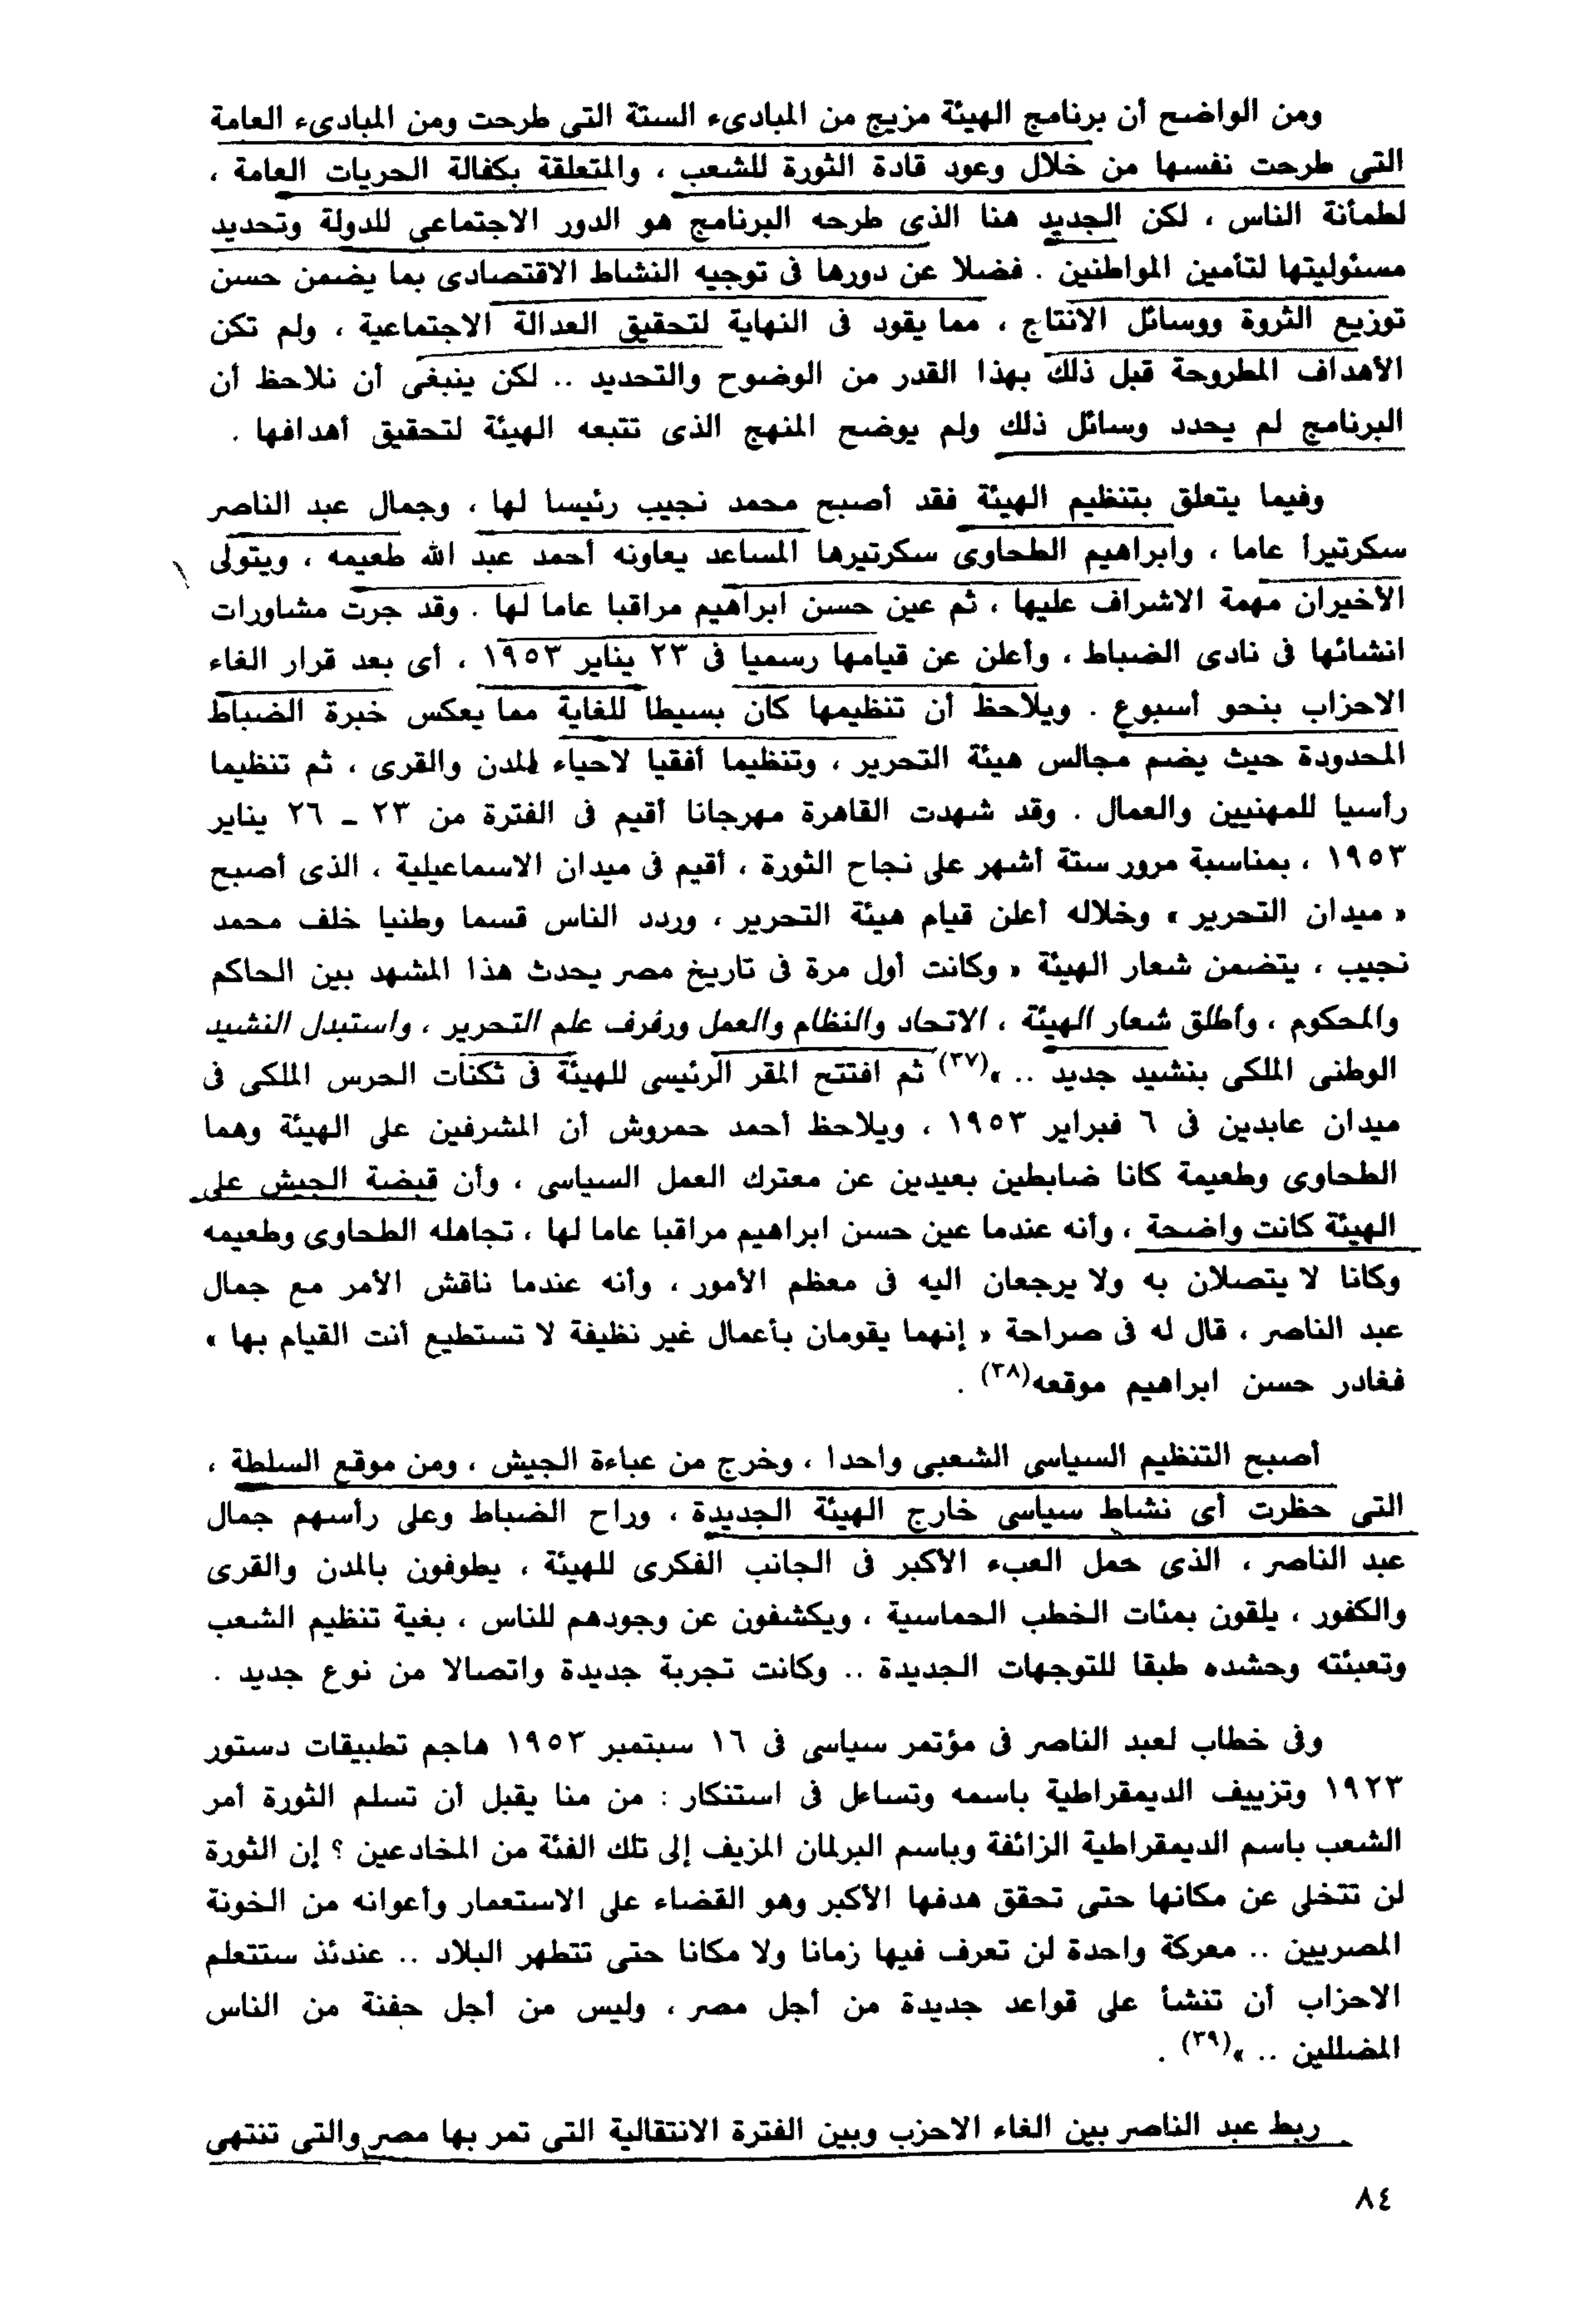 ومن الواضح أن برنامج الهيئة مزيج من المبادىء الستة التى طرحت ومن المبادىء العامة
التى طرحت نفسها من خلال وعود قادة الثورة للشعب ، والمتعلقة بكفالة الحريات العامة ،
لطمأنة الناس ، لكن الجديد هنا الذى طرحه البرنامج هو الدور الاجتماعى للدولة وتحديد
مسئوليتها لتأمين المواطنين . فضلا عن دورها فى توجيه النشاط الاقتصادى بما يضمن حسن
توزيع الثروة ووسائل الانتاج ، مما يقود فى النهاية لتحقيق العدالة الاجتماعية ، ولم تكن
الأهداف المطروحة قبل ذلك بهذا القدر من الوضوح والتحديد .. لكن ينبغى أن نلاحظ أن
البرنامج لم يحدد وسائل ذلك ولم يوضح المنهج الذى تتبعه الهيئة لتحقيق أهدافها .
وفيما يتعلق بتنظيم الهيئة فقد أصبح محمد نجيب رئيسا لها ، وجمال عبد الناصر
سكرتيرأ عاما ، وابراهيم الطحاوى سكرتيرها المساعد يعاونه أحمد عبد الله طعيمه ، ويتولى
الأخيران مهمة الاشراف عليها ، ثم عين حسن ابراهيم مراقبا عاما لها . وقد جرت مشاورات
انشائها فى نادى الضباط ، وأعلن عن قيامها رسميا فى ٢٣ يناير ١٩٥٣ ، أى بعد قرار الغاء
الاحزاب بنحو أسبوع . ويلاحظ أن تنظيمها كان بسيطا للغاية مما يعكس خبرة الضباط
المحدودة حيث يضم مجالس هيئة التحرير ، وتنظيما أفقيا لاحياء المدن والقرى ، ثم تنظيما
رأسيا للمهنيين والعمال . وقد شهدت القاهرة مهرجانا أقيم فى الفترة من ٢٣ - ٢٦ يناير
١٩٥٣ ، بمناسبة مرور ستة أشهر على نجاح الثورة ، أقيم فى ميدان الاسماعيلية ، الذى أصبح
« ميدان التحرير » وخلاله أعلن قيام هيئة التحرير ، وردد الناس قسما وطنيا خلف محمد
نجيب ، يتضمن شعار الهيئة « وكانت أول مرة فى تاريخ مصر يحدث هذا المشهد بين الحاكم
والمحكوم ، وأطلق شعار الهيئة ، الاتحاد والنظام والعمل ورفرف علم التحرير ، واستبدل النشيد
الوطنى الملكى بنشيد جديد .. »(٣٧) ثم افتتح المقر الرئيسى للهيئة فى ثكنات الحرس الملكى فى
ميدان عابدين فى ٦ فبراير ١٩٥٣ ، ويلاحظ أحمد حمروش أن المشرفين على الهيئة وهما
الطحاوى وطعيمة كانا ضابطين بعيدين عن معترك العمل السياسى ، وأن قبضة الجيش على
الهيئة كانت واضحة ، وأنه عندما عين حسن ابراهيم مراقبا عاما لها ، تجاهله الطحاوى وطعيمه
وكانا لا يتصلان به ولا يرجعان اليه فى معظم الأمور ، وأنه عندما ناقش الأمر مع جمال
عبد الناصر ، قال له فى صراحة « إنهما يقومان بأعمال غير نظيفة لا تستطيع أنت القيام بها »
فغادر حسن ابراهيم موقعه(٣٨) .
أصبح التنظيم السياسى الشعبى واحدا ، وخرج من عباءة الجيش ، ومن موقع السلطة ،
التى حظرت أى نشاط سياسى خارج الهيئة الجديدة ، وراح الضباط وعلى رأسهم جمال
عبد الناصر ، الذى حمل العبء الأكبر فى الجانب الفكرى للهيئة ، يطوفون بالمدن والقرى
والكفور ، يلقون بمئات الخطب الحماسية ، ويكشفون عن وجودهم للناس ، بغية تنظيم الشعب
وتعبئته وحشده طبقا للتوجهات الجديدة .. وكانت تجربة جديدة واتصالا من نوع جديد .
وفى خطاب لعبد الناصر فى مؤتمر سياسى فى ١٦ سبتمبر ١٩٥٣ هاجم تطبيقات دستور
١٩٢٣ وتزييف الديمقراطية باسمه وتساءل فى استنكار : من منا يقبل أن تسلم الثورة أمر
الشعب باسم الديمقراطية الزائفة وباسم البرلمان المزيف إلى تلك الفئة من المخادعين ؟ إن الثورة
لن تتخلى عن مكانها حتى تحقق هدفها الأكبر وهو القضاء على الاستعمار وأعوانه من الخونة
المصريين .. معركة واحدة لن تعرف فيها زمانا ولا مكانا حتى تتطهر البلاد .. عندئذ ستتعلم
الاحزاب أن تنشأ على قواعد جديدة من أجل مصر ، وليس من أجل حفنة من الناس
المضللين .. »(٣٩) .
ربط عبد الناصر بين الغاء الاحزب وبين الفترة الانتقالية التى تمر بها مصر والتى تنتهى
٨٤